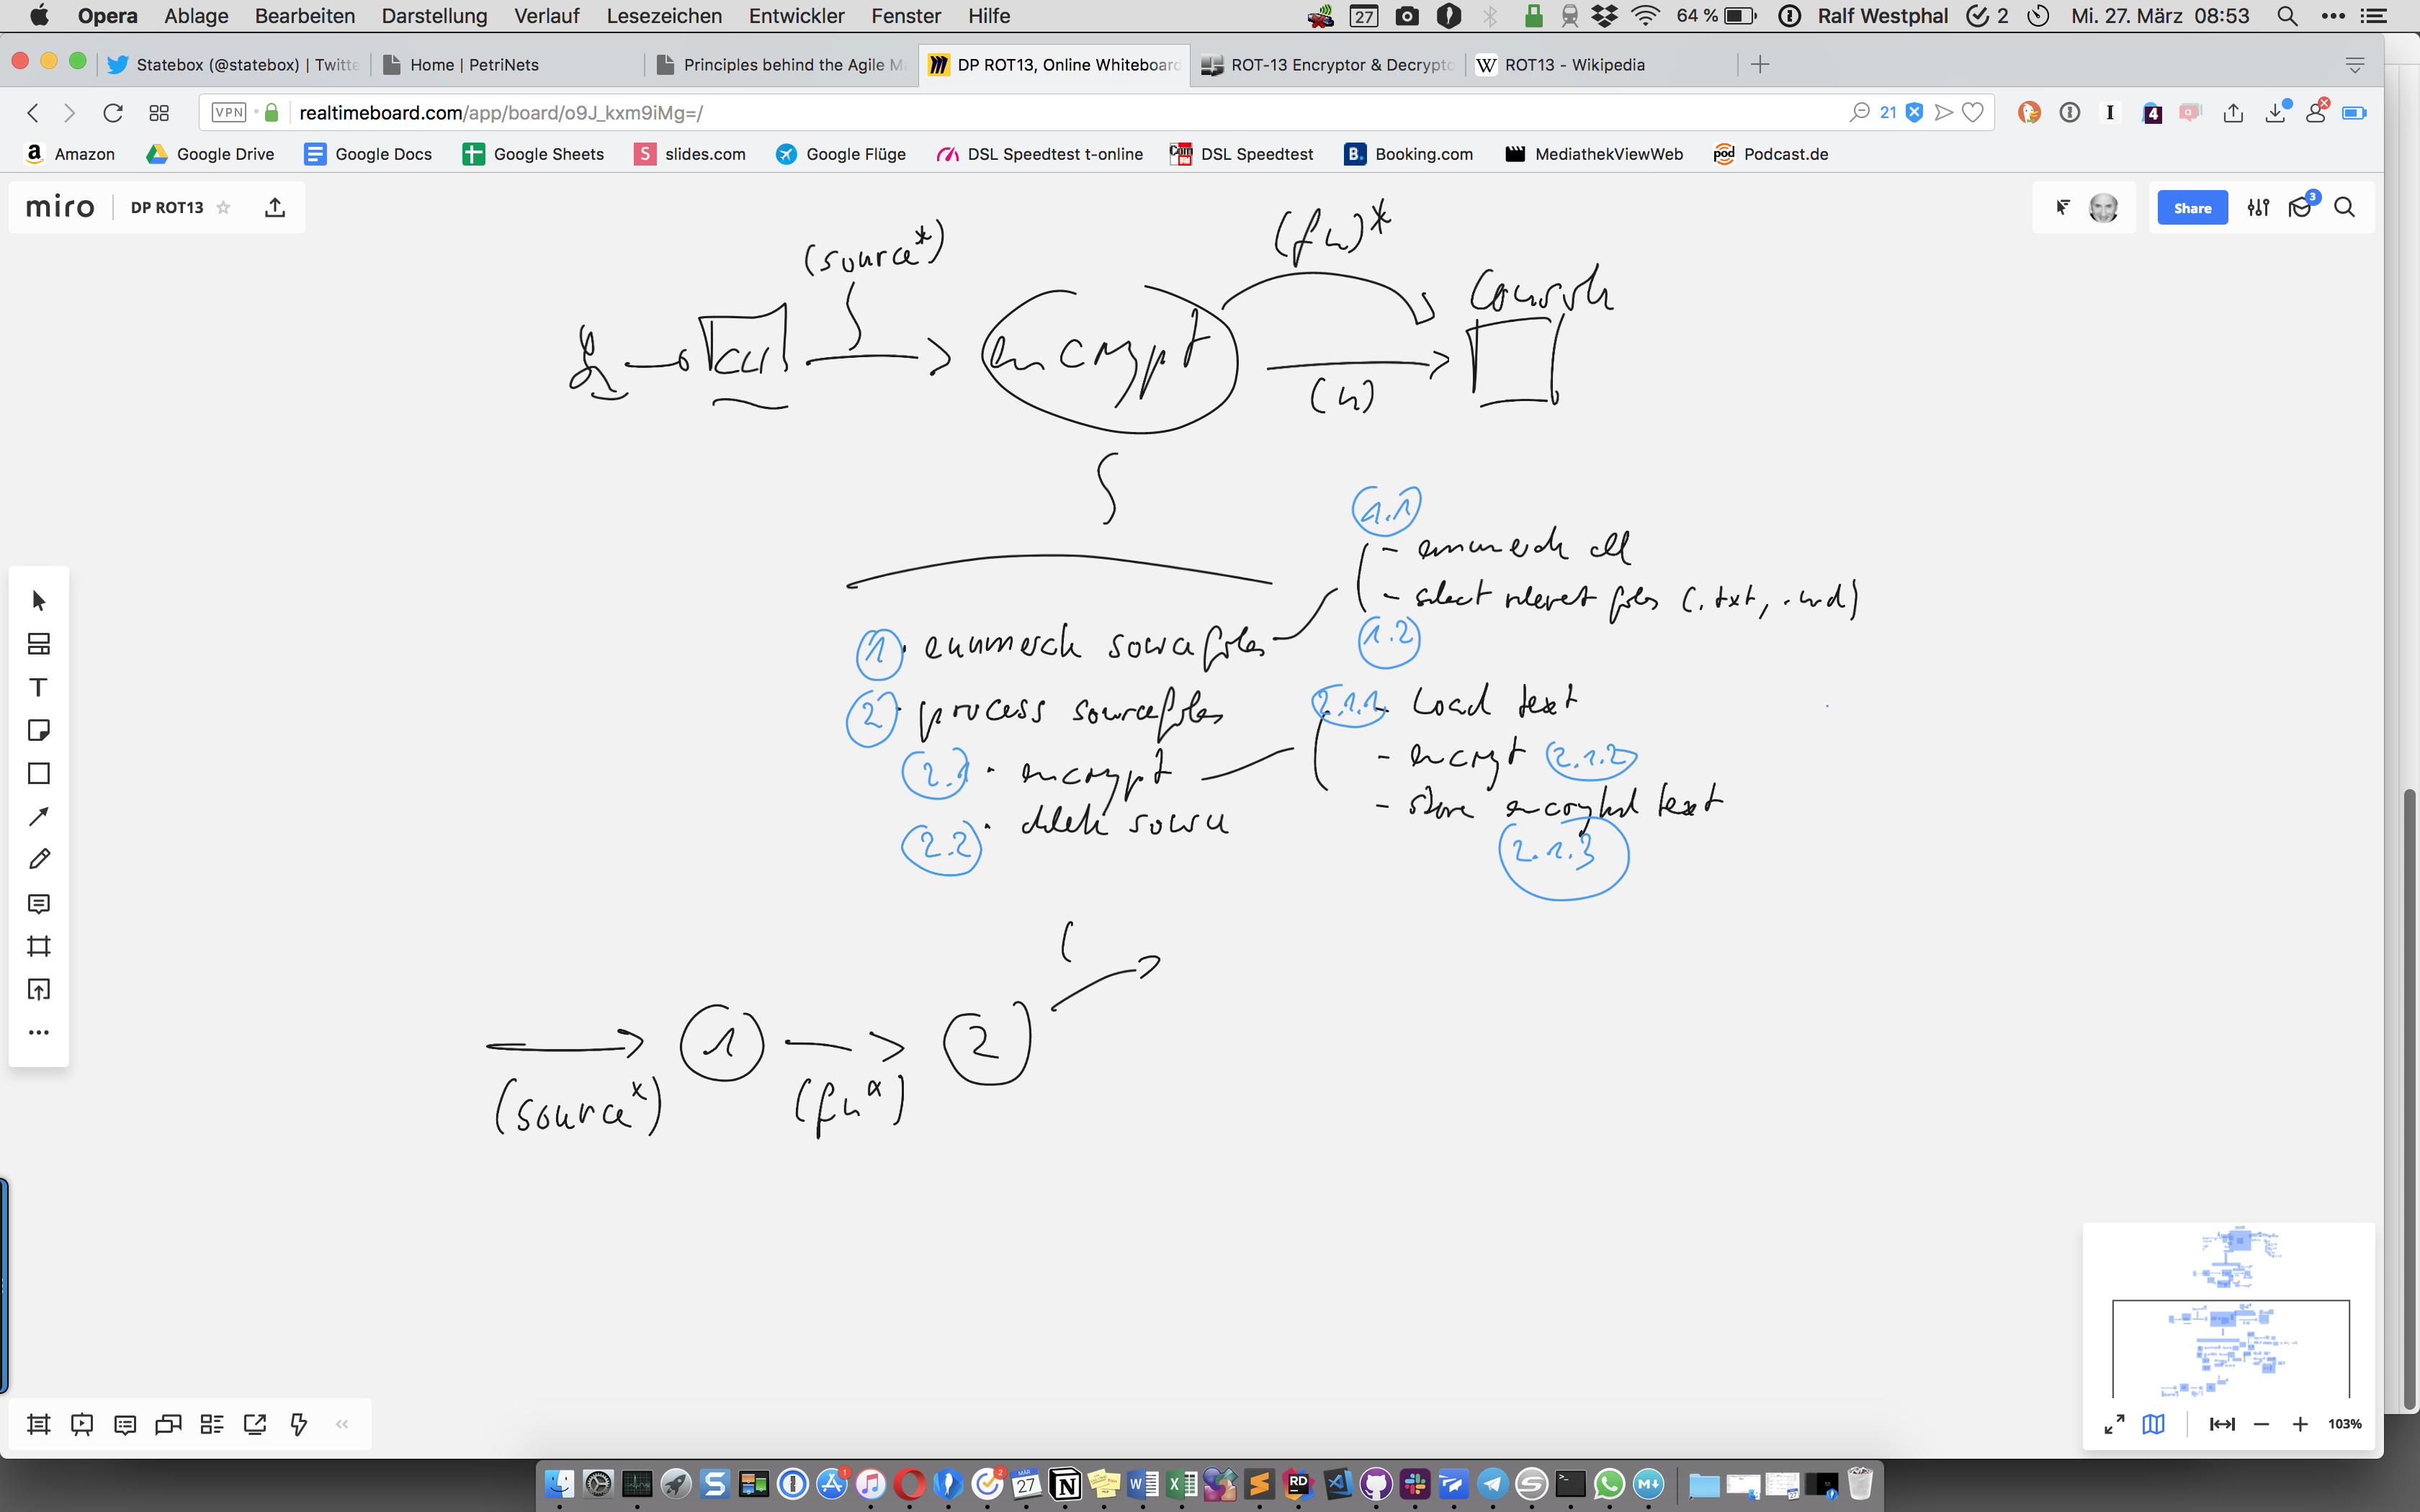 Opera Ablage Bearbeiten Darstellung Verlauf Lesezeichen Entwickler Fenster Hilfe 27 64 % Ralf Westphal 2 Mi. 27. März 08:53
Statebox (@statebox) | Twitte Home | PetriNets Principles behind the Agile Ma DP ROT13, Online Whiteboard ROT-13 Encryptor & Decrypto W ROT13 - Wikipedia
VPN realtimeboard.com/app/board/o9J_kxm9iMg=/ 21 4
Amazon Google Drive Google Docs Google Sheets slides.com Google Flüge DSL Speedtest t-online DSL Speedtest Booking.com MediathekViewWeb Podcast.de
miro DP ROT13 Share 3
(source*) (fn)*
CLI encrypt Console
(n)
1.1
- enumerate all
- select relevant files (.txt, .md)
1.2
1 enumerate source files
2 process source files
2.1 encrypt
2.2 delete source
2.1.1 - load text
- encrypt 2.1.2
- store encrypted text
2.1.3
(
1 2
(source*) (fn*)
103%